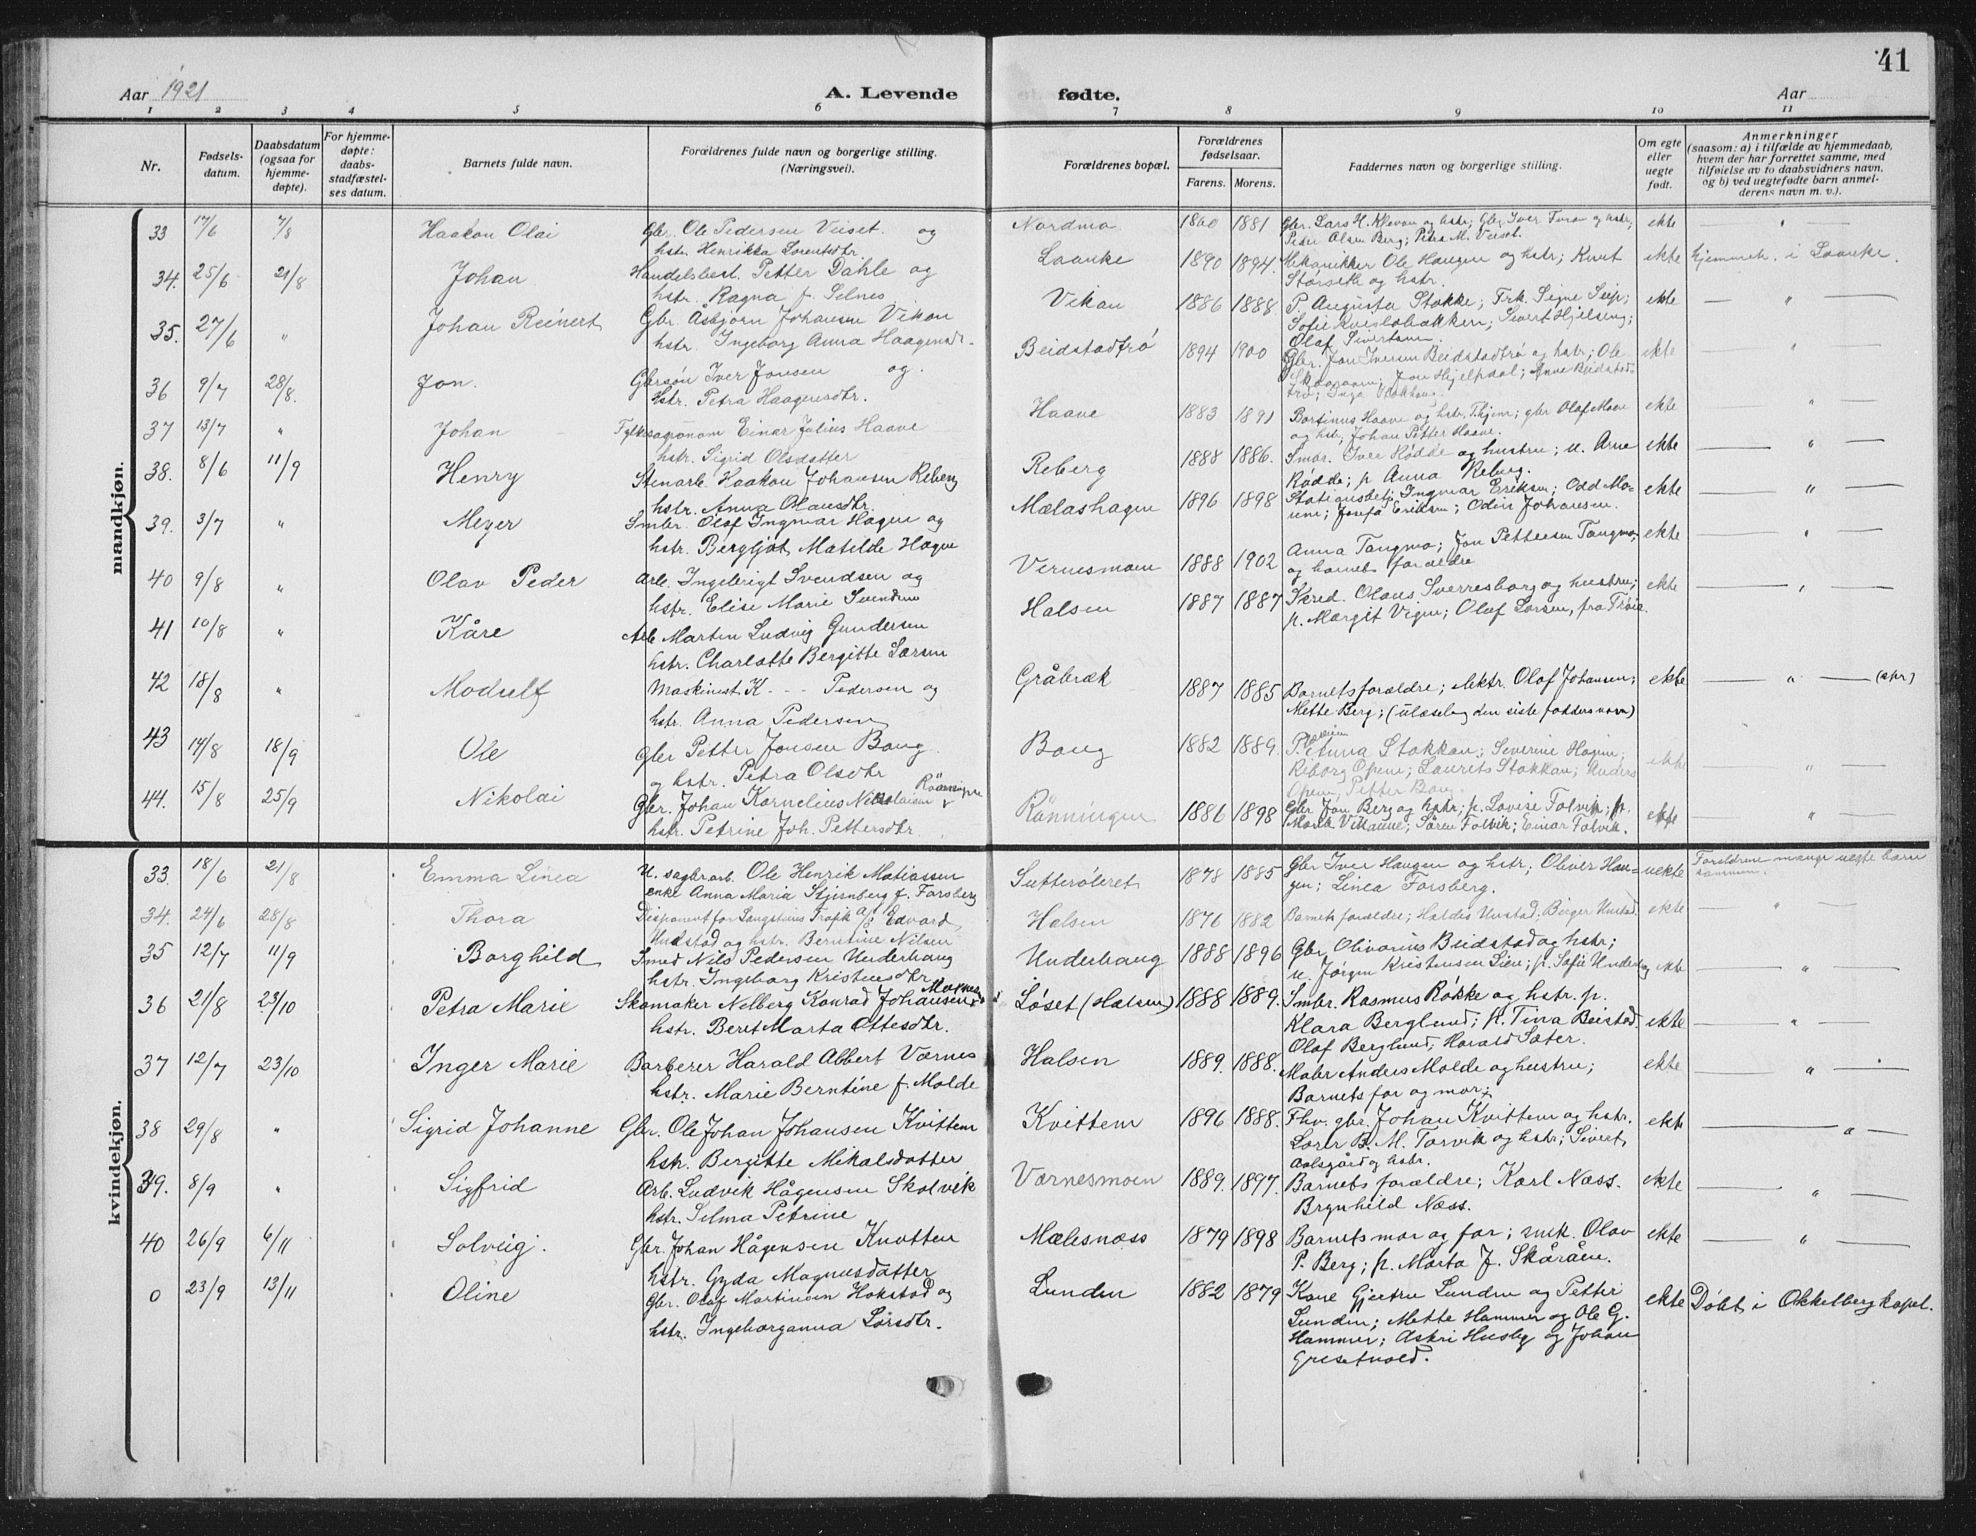 41
Aar 1921
A. Levende fødte.
Aar
1 2 3 4 5 6 7 8 9 10 11
Nr.
Fødsels-
datum.
Daabsdatum
(ogsaa for
hjemme-
døpte).
For hjemme-
døpte:
daabs-
stadfæstel-
ses datum.
Barnets fulde navn.
Forældrenes fulde navn og borgerlige stilling.
(Næringsvei).
Forældrenes bopæl.
Forældrenes
fødselsaar.
Farens. Morens.
Faddernes navn og borgerlige stilling.
Om egte
eller
uegte
født.
Anmerkninger
(saasom: a) i tilfælde av hjemmedaab,
hvem der har forrettet samme, med
tilføielse av to daabsvidners navn,
og b) ved uegtefødte barn anmel-
derens navn m. v.).
mandkjøn.
33 17/6 7/8 Haakon Olai Gbr. Ole Pedersen Veiset og Nordmo 1860 1881 Gbr. Lars H. Klevan og hstr; Gbr. Iver og hstr; ekte "
hstr. Henrikka Lorentsdtr. Peder Olsen Berg; Petra M. Veiset.
34. 25/6 21/8 Johan Handelsbest. Petter Dahle og Laanke 1890 1894. Mekanikker Ole Haugen og hstr; Knut ekte hjemmeh. i Laanke.
hstr. Ragna f. Selnes Størseth og hstr.
35. 27/6 " Johan Reinert Gbr. Asbjørn Johansen Vikan Vikan 1886 1888. P. Augusta Stokke; Frk. Signe ekte "
hstr. Ingeborg Anna Haagensdtr. Sofie Kvislabakken; Sivert Hjelseng;
Olaf Sivertsen.
36 9/7 28/8. Jon. Gbrsøn Iver Jonsen og Beidstadtrø 1894 1900 Gbr. Jon Iversen Beidstadtrø og hstr; Ole ekte "
hstr. Petra Haagensdtr. Jon Hjelpdal; Anne Beidstad-
trø; Inga
37 13/7 " Johan Fylkesagronom Einar Julius Haave Haave 1883 1891 Bortinus Haave og hstr. Thjem; gbr Olaf Moen ekte "
hstr. Sigrid Olsdatter og hstr, Johan Petter Haave.
38. 8/6 11/9 Henry Stenarb. Haakon Johansen Reberg Reberg 1888 1886. Smbr. Iver Rødde og hustru; u. Arne ekte "
hstr. Anna Olausdtr. Rødde; p Anna Reberg.
39. 3/7 " Meyer Smbr. Olaf Ingmar Hagen og Mælashagen 1896 1898 Stationsbetj. Ingmar Eriksen; Odd Mo- ekte "
hstr. Bergljot Matilde Hagen Josefa Eriksen; Odin Johansen.
40 9/8 " Olav Peder Arb. Ingebrigt Svendsen og Vernesmoen 1888 1902 Anna Tangmo; Jon Pettersen Tangmo, ekte "
hstr. Elise Marie Svendsen og barnets forældre
41 10/8 " Kåre Arb Martin Ludvig Gundersen Halsen 1887 1887 Skred. Olaus Sverresborg og hustru; ekte "
hstr. Charlotte Bergitte Larsen p. Margit Vigen; Olaf Larsen, fra Trøia.
42 18/8 " Modulf Maskinest K - - - Pedersen og Gråbræk 1887 1885 Barnets forældre; elektr. Olaf Johansen; ekte " (spr)
hstr. Anna Pedersen Mette Berg; (ulæselig den siste fadders navn)
43 14/8 18/9 Ole Gbr Petter Jonsen Bang Bang 1882 1889. P. Anna Stokkan; Severine Hagen; ekte "
og hstr. Petra Olsdtr Reborg Opem; Laurits Stokkan; Anders
Opem; Petter Bang.
44. 15/8 25/9 Nikolai Gbr. Johan Kornelius Nikolaisen Rönningen Rönningen 1886 1898 Gbr Jon Berg og hstr; p. Lovise Folvik; p. ekte "
hstr. Petrine Joh. Pettersdtr. Marit Vikanne; Søren Folvik; Einar Folvik.
kvindekjøn.
33. 18/6 21/8 Emma Linea U. sagbrarb. Ole Henrik Matiassen 1878 1885 Gbr Iver Haugen og hstr; Oliver Hau- uekte Foreldrene mange uegte barn
enke Anna Maria Stjernberg f. Forsberg gen; Linea Forsberg. sammen.
34. 24/6 28/8 Thora Disponent for Langsteins Trafik a/s Edvard Halsen 1876 1882 Barnets forældre; Haldis Unstad; Birger Unstad ekte "
Unstad og hstr. Berntine Nilsen
35 12/7 11/9 Borghild Smed Nils Pedersen Underhaug Underhaug 1888 1896 Gbr Olivarius Beidstad og hstr; ekte "
hstr. Ingeborg Kristensdtr. u. Jørgen Kristensen Lien; p. Sofie Underhaug
36 21/8 23/10 Petra Marie Skomaker Nelberg Konrad Johansen Løset (Halsen) 1888 1889. Smbr. Rasmus Røkke og hstr. p. ekte "
hstr. Beret Marta Ottesdtr. Klara Berglund; p. Tina Beistad
Olaf Berglund; Harald Sæter.
37 12/7 23/10 Inger Marie Barberer Harald Albert Værnes Halsen 1889. 1888. Mabr Anders Molde og hustru; ekte "
hstr. Marie Berntine f. Molde Barnets far og mor;
38 29/8 " Sigrid Johanne Gbr. Ole Johan Johansen Kvittem Kvittem 1896 1888. Fhv. gbr. Johan Kvittem og hstr. ekte "
hstr. Bergitte Mikalsdatter Lærer B. M. Torvik og hstr; Sivert
Aalsgård og hstr.
39. 8/9 " Sigfrid Arb. Ludvik Hågensen Skolvik Værnesmoen 1889. 1897. Barnets forældre; Karl Næss. ekte "
hstr. Selma Petrine Brynhild Næss.
40 26/9 6/11 Solveig. Gbr. Johan Hågensen Knotten Mælesnæss 1879 1898 Barnets mor og far; snik. Olav ekte "
hstr. Gyda Magnusdatter P. Berg; p. Marta J. Skåråen.
0 23/9 13/11 Oline Gbr. Olaf Martinsen Hokstad og Lunden 1882 1879 Kone Gjertru Lunden og Petter ekte Døbt i Okkelberg kapel.
hstr. Ingeborganna Larsdtr. Lunden; Mette Hammer og Ole G.
Hammer; Askri Husby og Johan
Gresetvold.